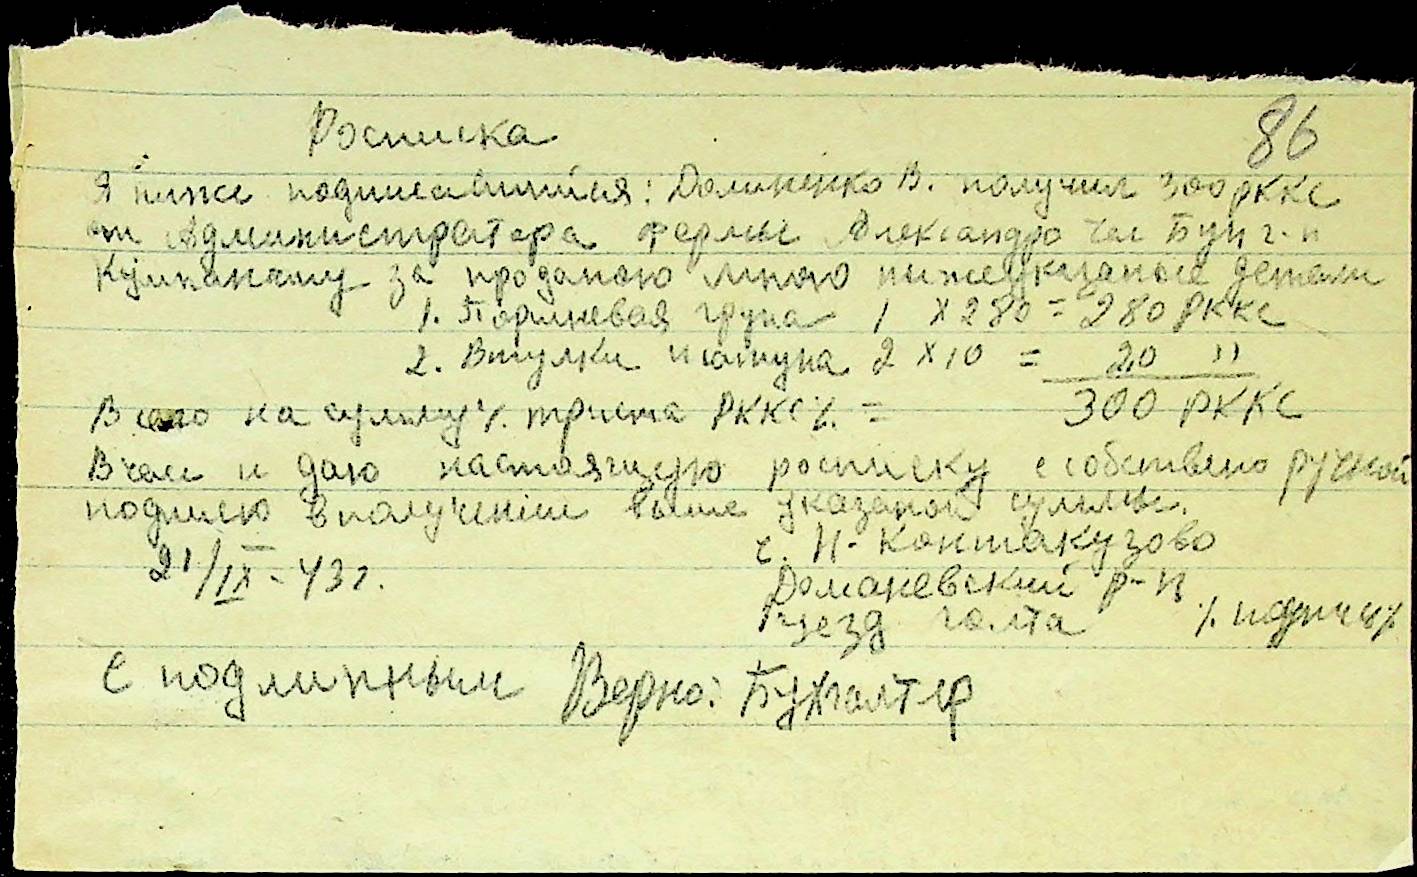 86
Росписка
Я ниже подписавшийся: Долиненко В. получил 300 РККС
от Администратора фермы Александра чел Бун г-н
за проданою мною нижеуказаные детали
1. Поршневая група 1 х 280 = 280 РККС
2. Втулки шатуна 2 х 10 = 20 "
Всего на сумму %. триста РККС %. = 300 РККС
В чем и даю настоящую росписку с собствено ручной
подписю в получении выше указаной суммы.
21/IX - 43 г.
с. Н- Контакузово
Доманевский р-н
Уезд Голта /. подпись /.
С подлинным Верно: Бухгалтер